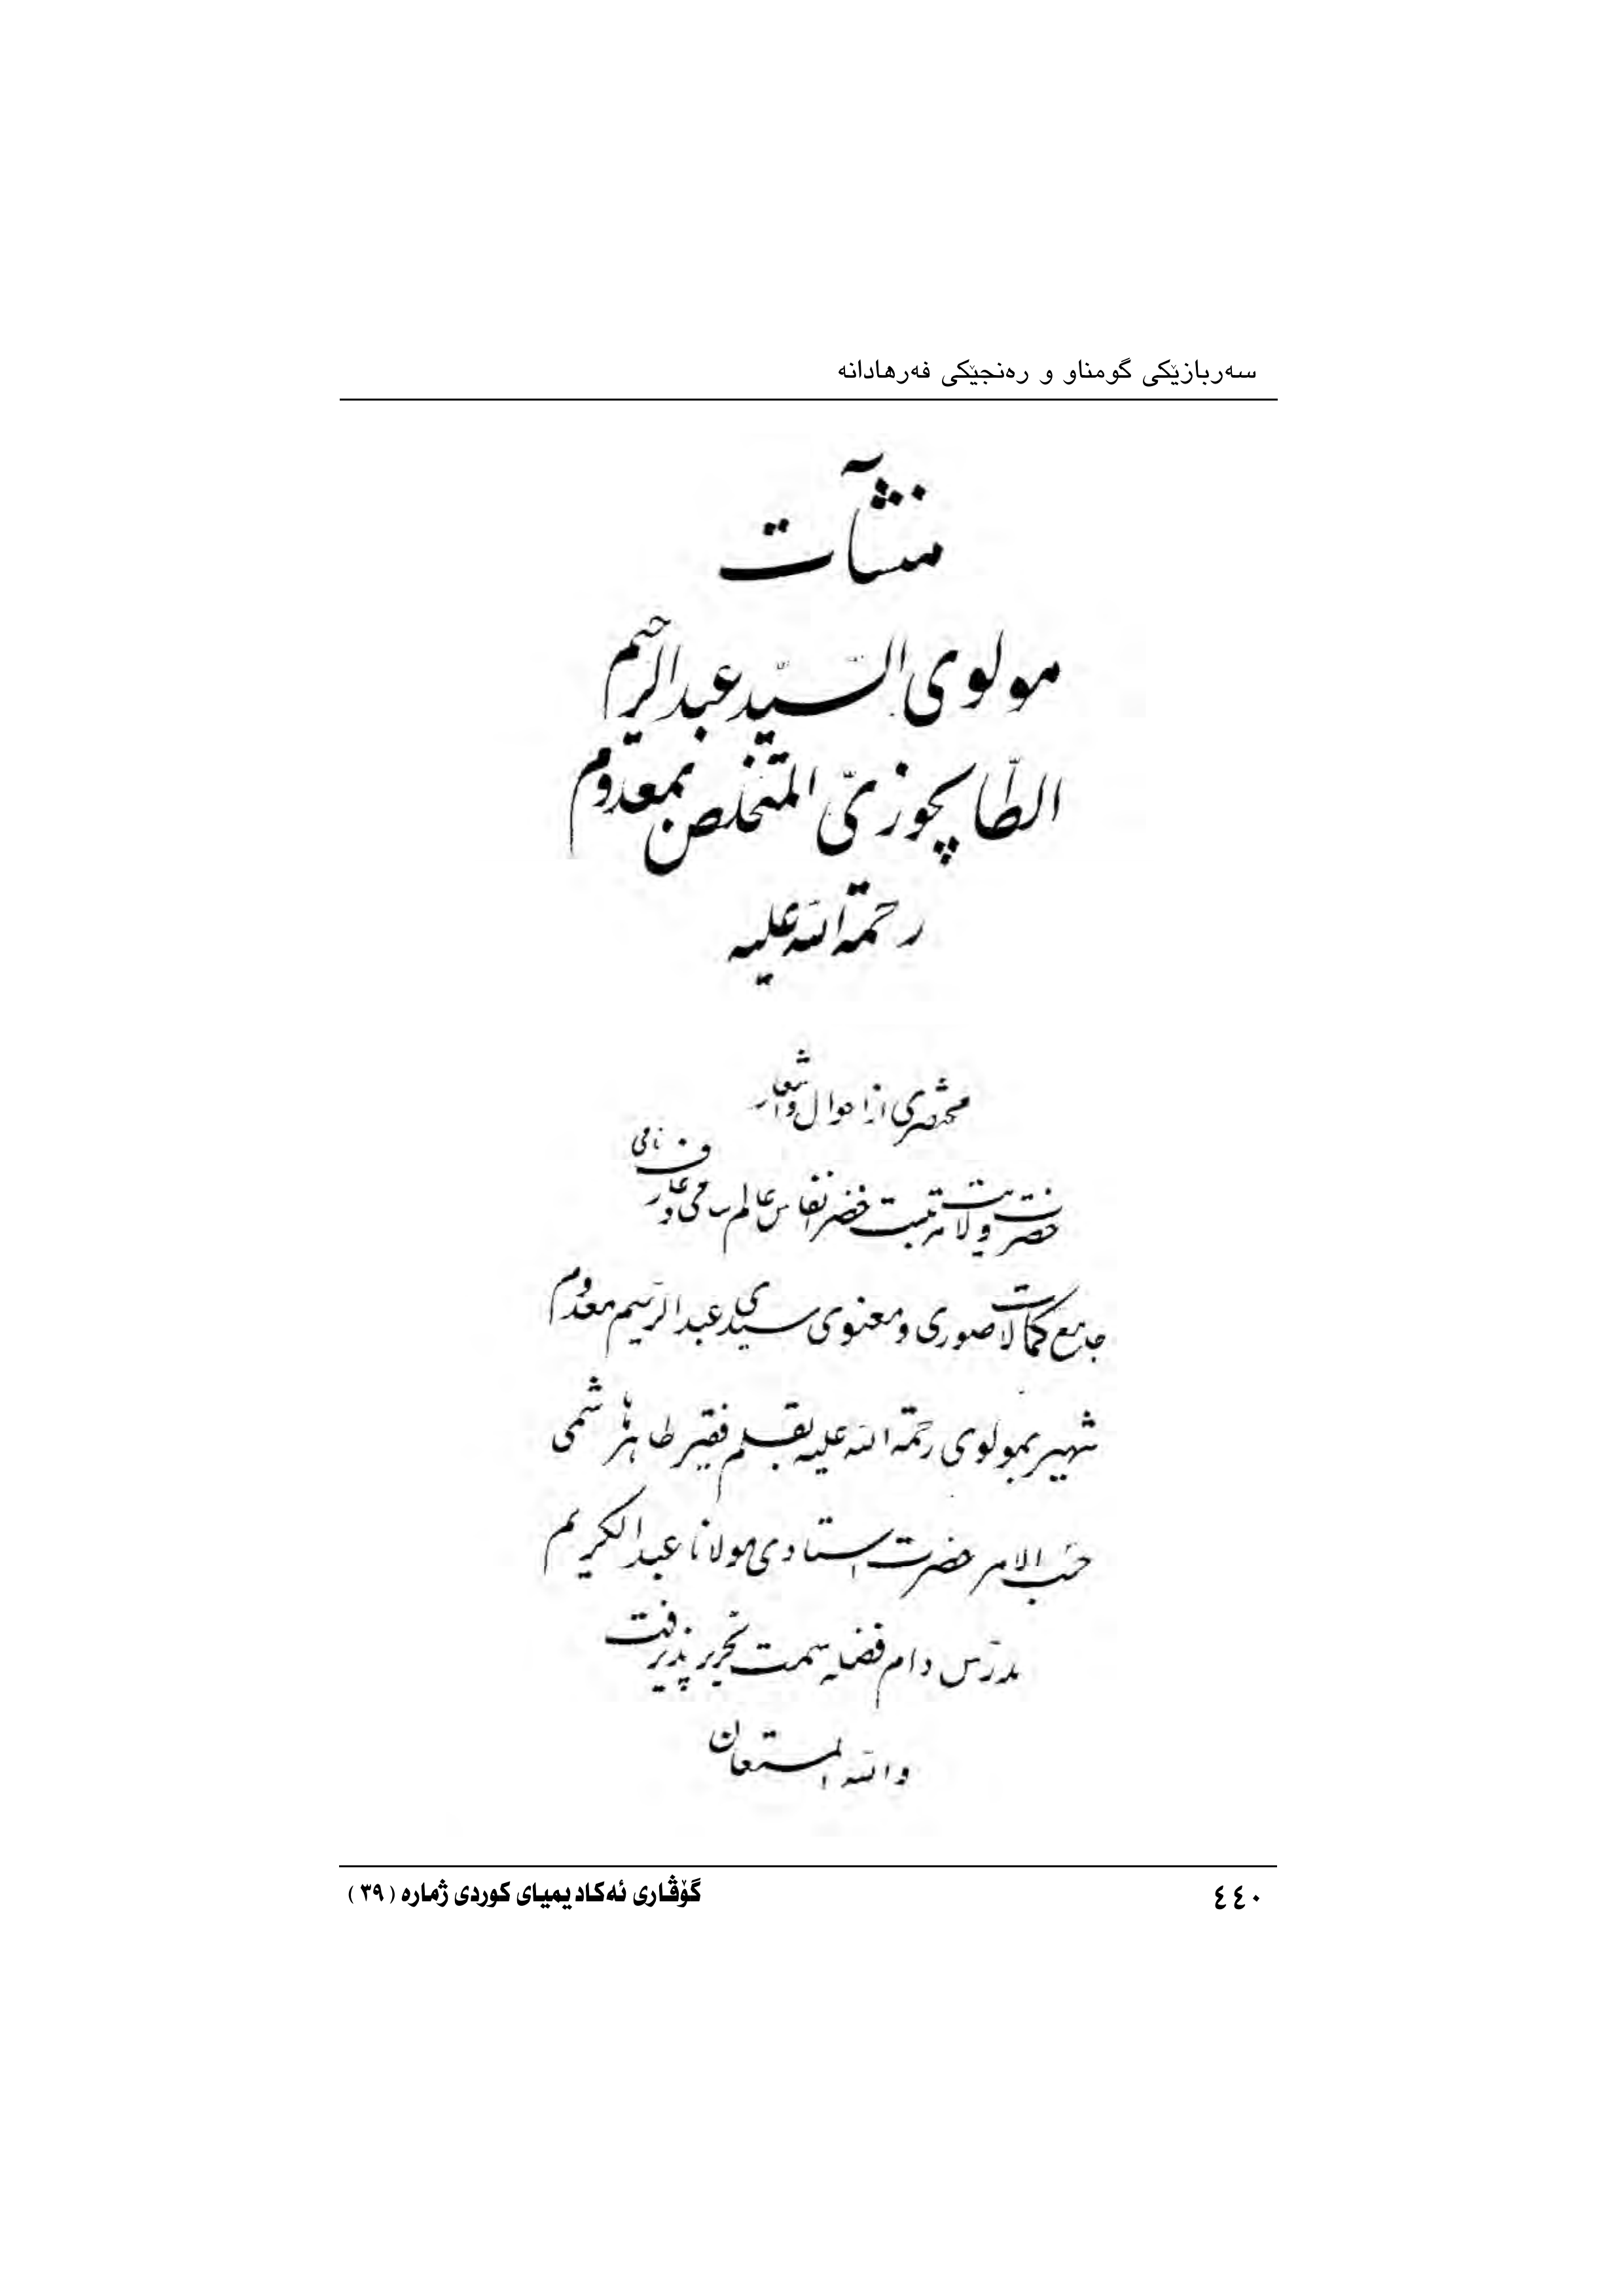 سەربازێکی گومناو و رەنجێکی فەرهادانە
منشآت
مولوی السّیّد عبدالرحیم
الطّایجوزیّ المتخلص بمعدوم
رحمة الله علیه
مختصری از احوال و اشعار
حضرت ولایت مرتبت خضر انفاس عالم سامی و عارف نامی
جامع کمالات صوری و معنوی سیدی سید عبدالرحیم معدوم
شهیر بمولوی رحمة الله علیه بقلم فقیر طاهر هاشمی
حسب الامر حضرت استادی مولانا عبدالکریم
مدرّس دام فضله سمت تحریر پذیرفت
والله المستعان
گۆڤاری ئەکادیمیای کوردی ژمارە (٣٩)
٤٤٠